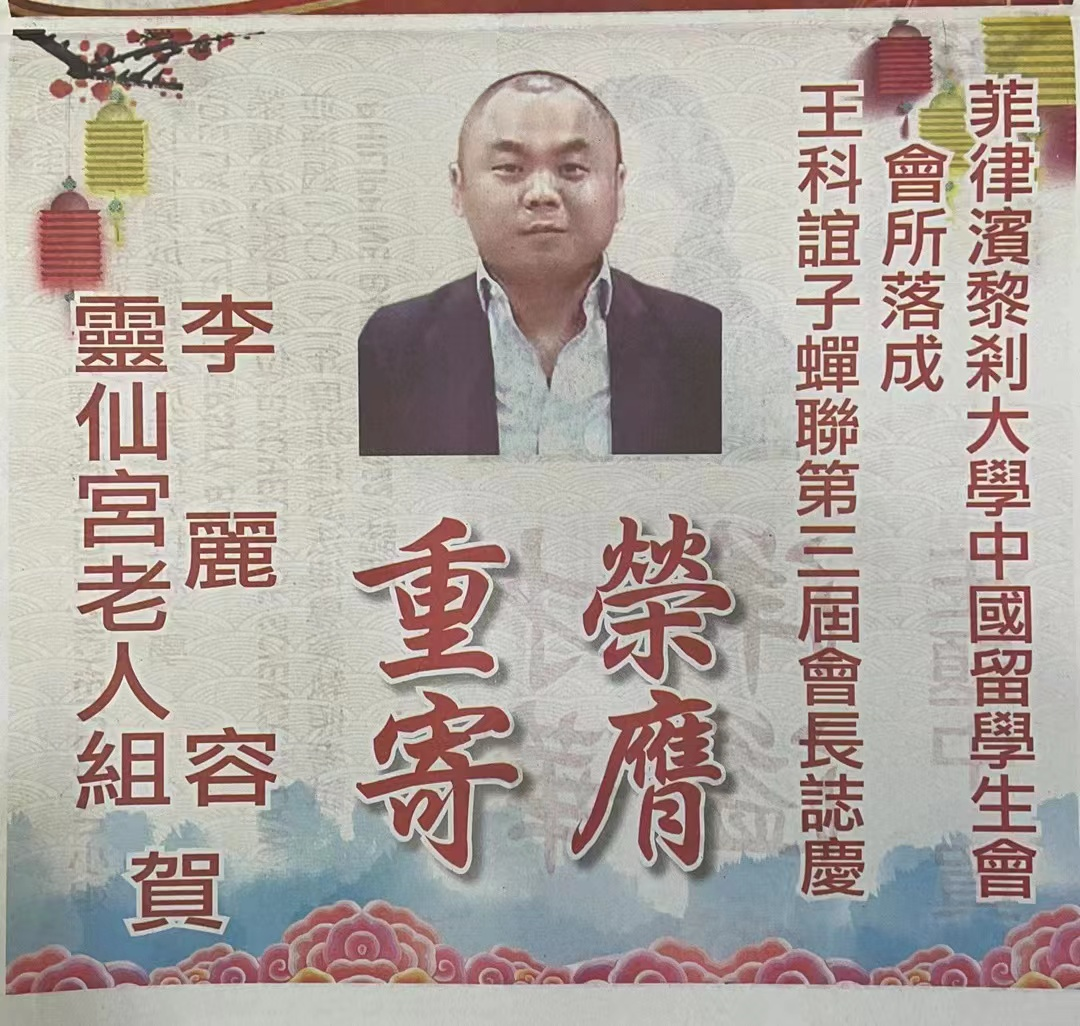 菲律濱黎刹大學中國留學生會
會所落成
王科誼子蟬聯第三屆會長誌慶
榮膺
重寄
李麗容
靈仙宮老人組
賀